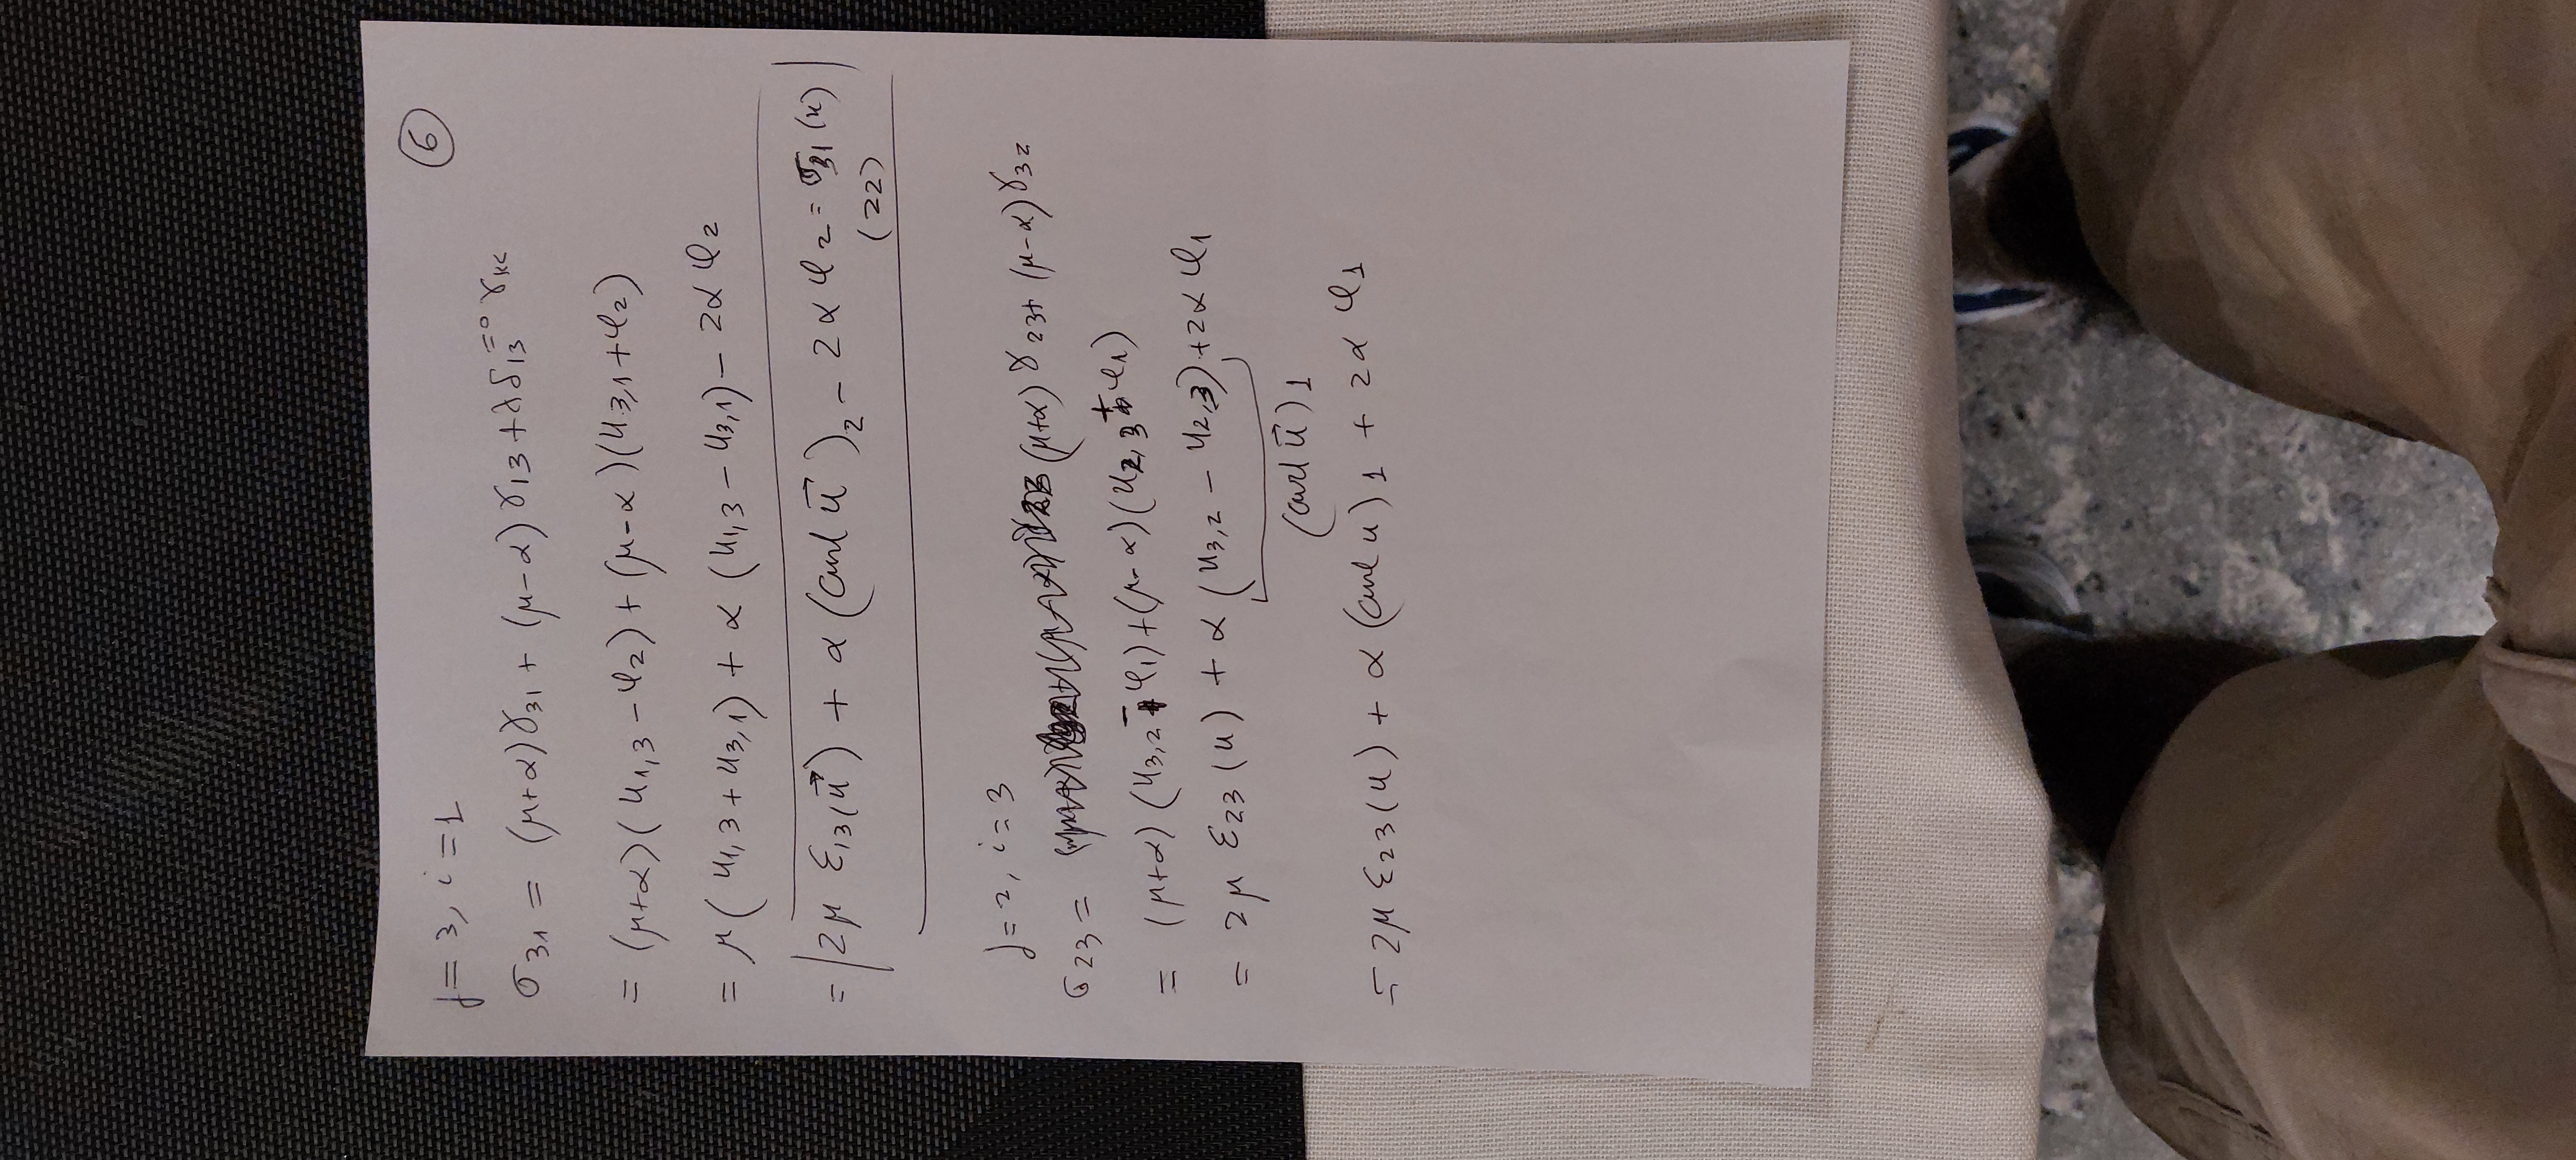 6
j=3, i=1
σ31 = (μ+α)γ31 + (μ-α)γ13 + λδ13=0 γkk
= (μ+α)(u1,3 - φ2) + (μ-α)(u3,1 + φ2)
= μ(u1,3 + u3,1) + α(u1,3 - u3,1) - 2αφ2
= |2μ ε13(u⃗) + α(curl u⃗)2 - 2αφ2 = σ31(u)|
(22)
j=2, i=3
σ23 = (μ+α)γ23 + (μ-α)γ32
= (μ+α)(u3,2 - φ1) + (μ-α)(u2,3 + φ1)
= 2μ ε23(u) + α(u3,2 - u2,3) + 2αφ1
(curl u⃗)1
= 2μ ε23(u) + α(curl u)1 + 2αφ1